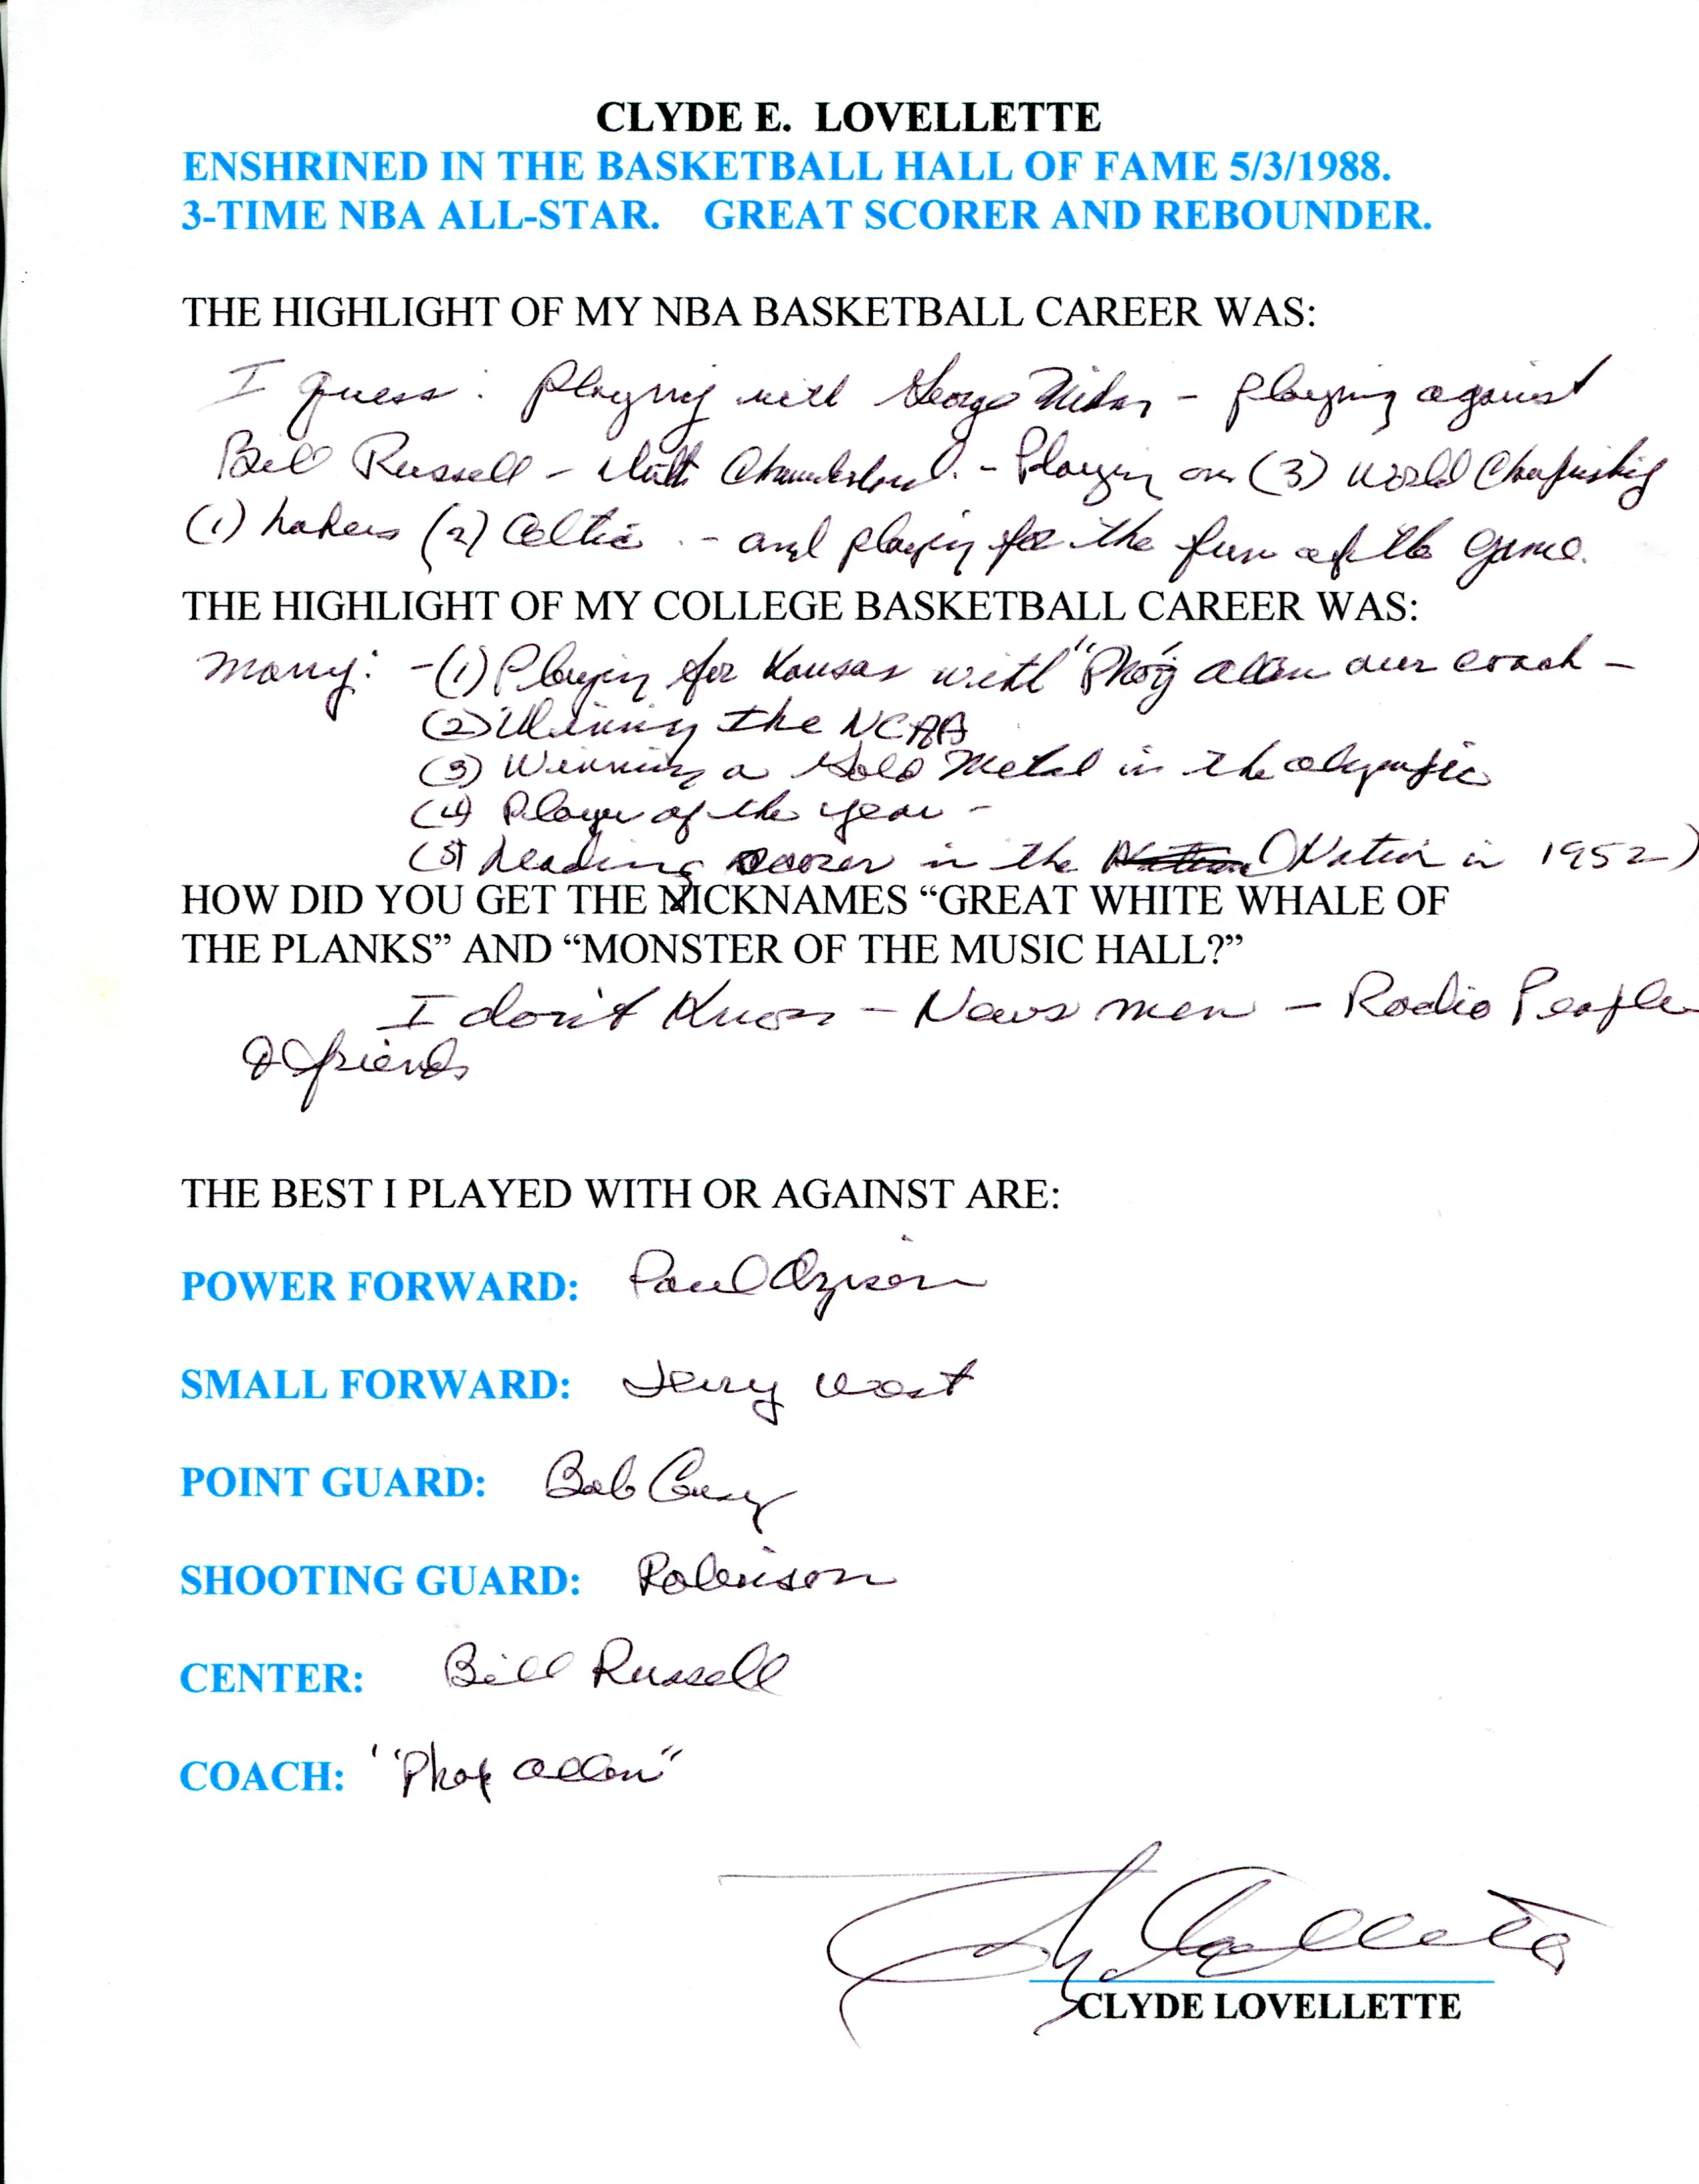 CLYDE E. LOVELLETTE
ENSHRINED IN THE BASKETBALL HALL OF FAME 5/3/1988.
3-TIME NBA ALL-STAR. GREAT SCORER AND REBOUNDER.
THE HIGHLIGHT OF MY NBA BASKETBALL CAREER WAS:
I guess: Playing with George Mikan - playing against
Bill Russell - Wilt Chamberland. - Playing on (3) World
(1) Lakers (2) Celtic - and playing for the fun of the game.
THE HIGHLIGHT OF MY COLLEGE BASKETBALL CAREER WAS:
Many: - (1) Playing for Kansas with "Phog" Allen our coach -
(2) Winning the NCAA
(3) Winning a Gold Metal in the olympic
(4) Player of the year -
(5) Leading scorer in the (Nation in 1952)
HOW DID YOU GET THE NICKNAMES “GREAT WHITE WHALE OF
THE PLANKS” AND “MONSTER OF THE MUSIC HALL?”
I don't know - News men - Radio People
& friends
THE BEST I PLAYED WITH OR AGAINST ARE:
POWER FORWARD: Paul
SMALL FORWARD: Jerry West
POINT GUARD: Bob Cousy
SHOOTING GUARD: Robinson
CENTER: Bill Russell
COACH: "Phog Allen"
Clyde Lovellette
CLYDE LOVELLETTE